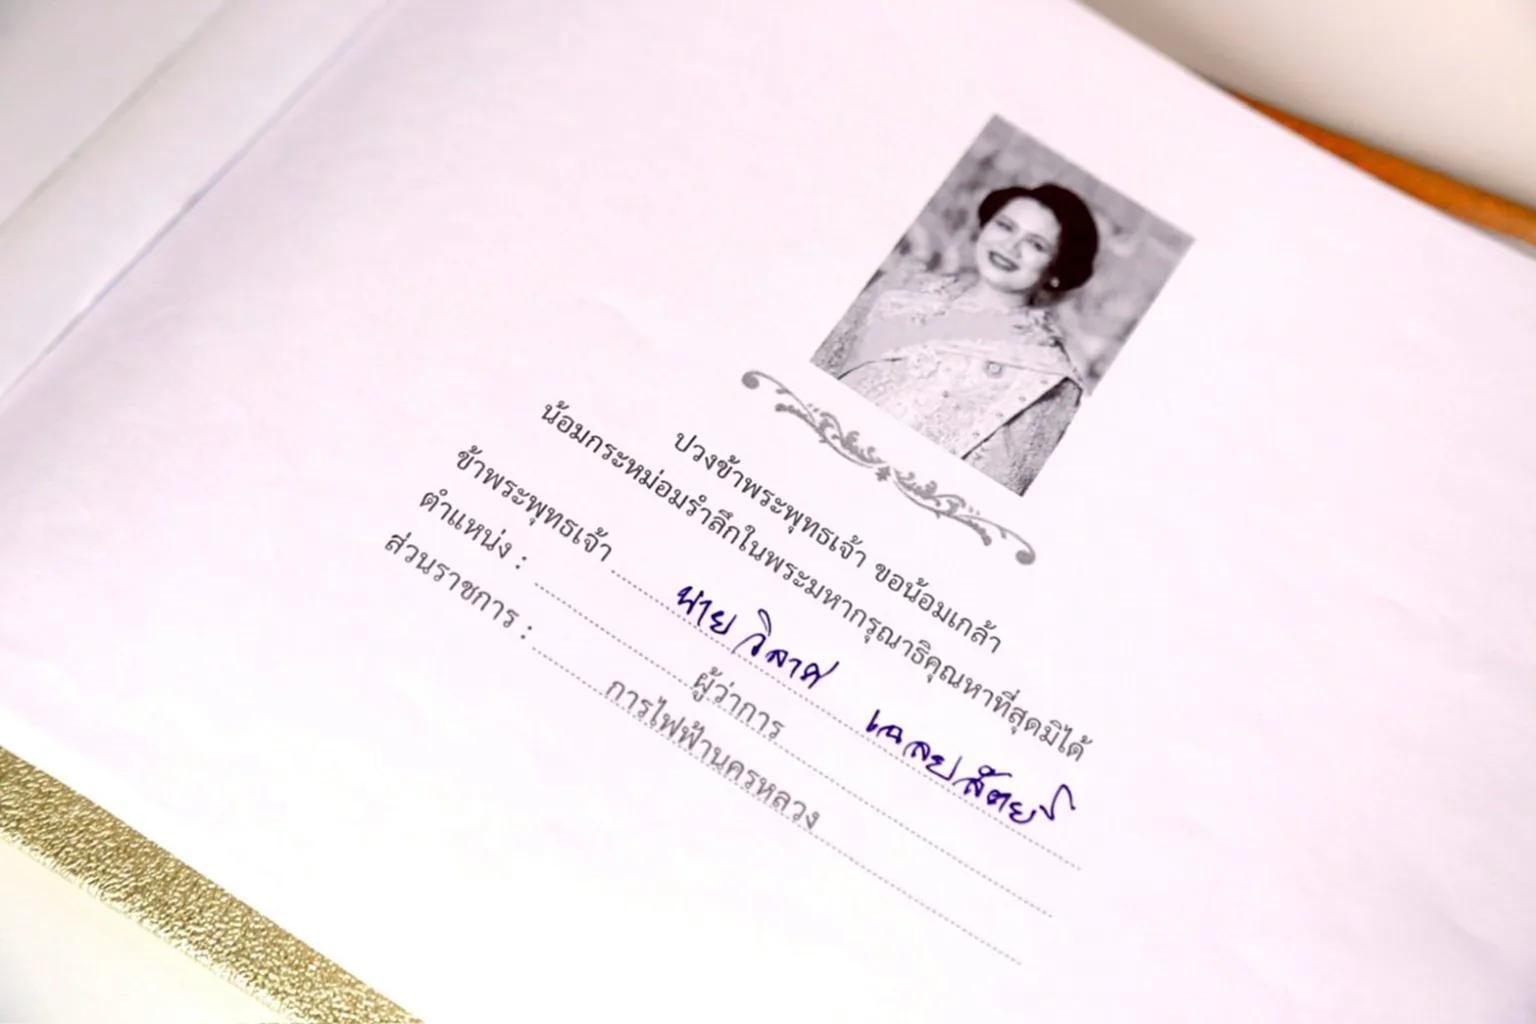 ปวงข้าพระพุทธเจ้า ขอน้อมเกล้า
น้อมกระหม่อมรำลึกในพระมหากรุณาธิคุณหาที่สุดมิได้
ข้าพระพุทธเจ้า นาย วิลาศ เฉลยสัตย์
ตำแหน่ง : ผู้ว่าการ
ส่วนราชการ : การไฟฟ้านครหลวง